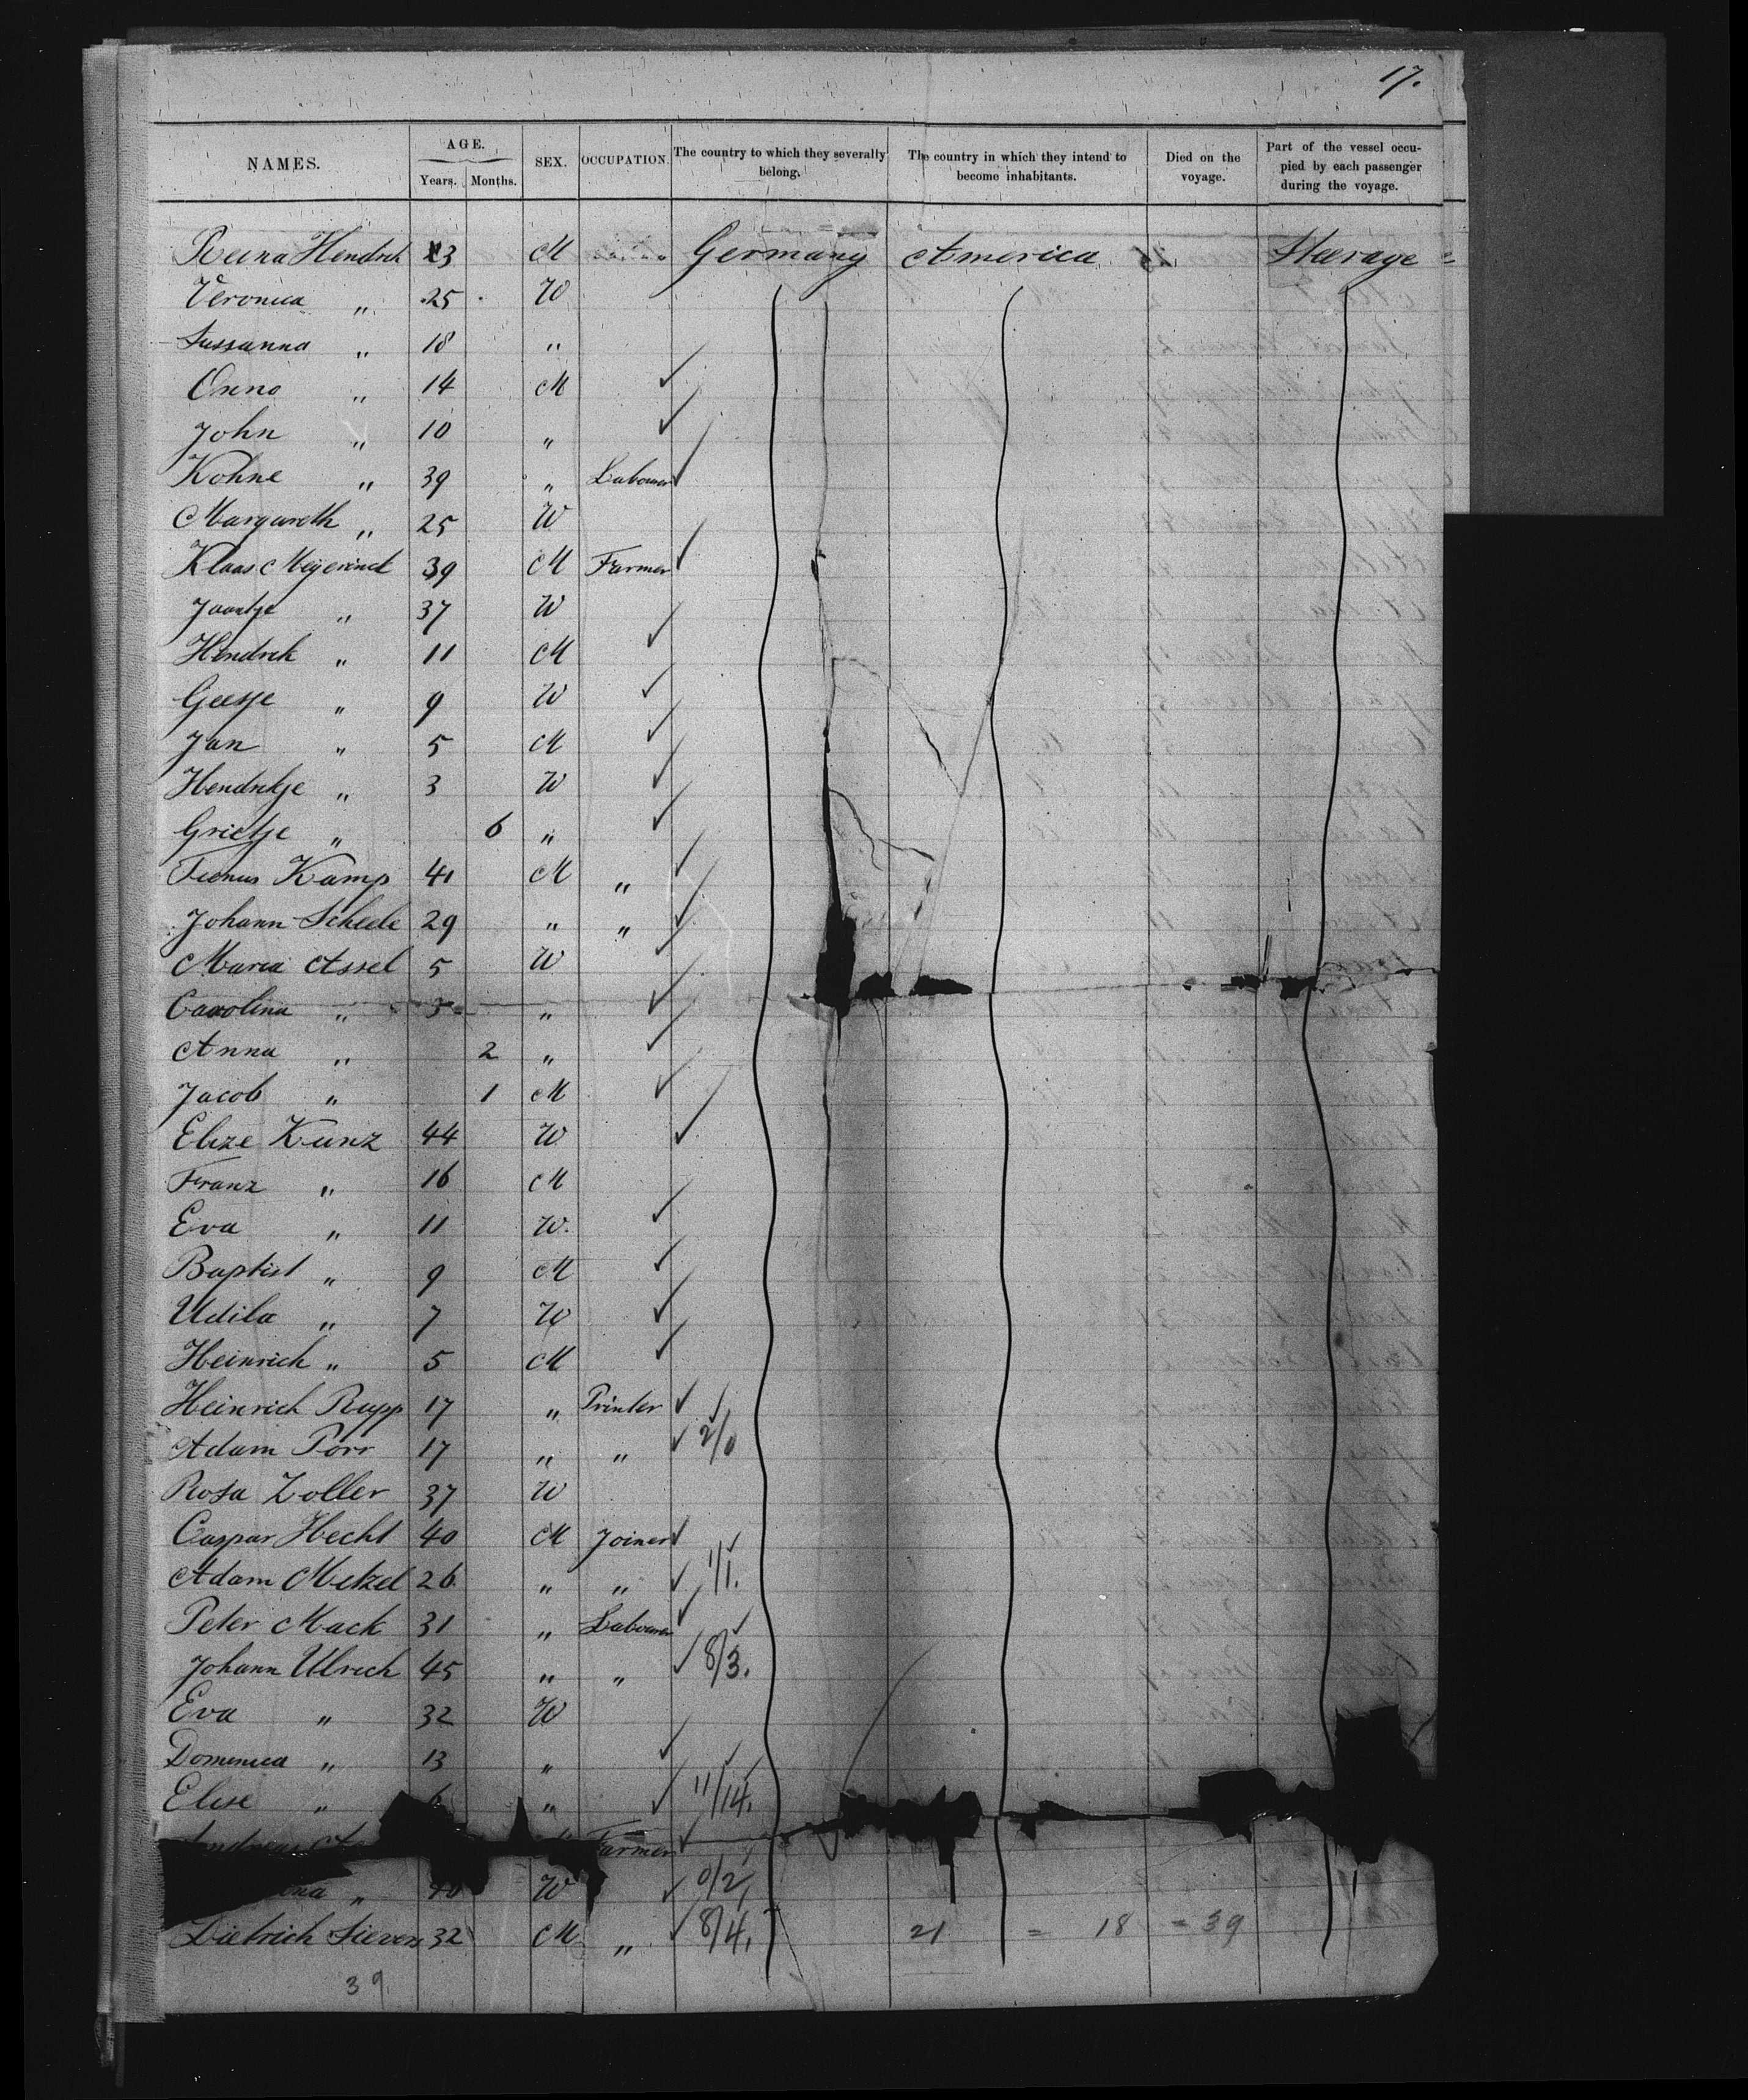 17.
NAMES. AGE. Years. Months. SEX. OCCUPATION. The country to which they severally belong. The country in which they intend to become inhabitants. Died on the voyage. Part of the vessel occupied by each passenger during the voyage.
Hendrik 3 M Germany America Steerage
Veronica " 25 W
Sussanna " 18 "
Onno " 14 M
John " 10 "
Kohne " 39 " Labourer
Margareth " 25 W
Klaas Meyerinck 39 M Farmer
Jaantje " 37 W
Hendrik " 11 M
Geesje " 9 W
Jan " 5 M
Hendrikje " 3 W
Grietje " 6 "
Kamp 41 M "
Johann Scheele 29 " "
Maria Assel 5 W
Carolina " 3 "
Anna " 2 "
Jacob " 1 M
Elize Kunz 44 W
Franz " 16 M
Eva " 11 W.
Baptist " 9 M
Udila " 7 W
Heinrich " 5 M
Heinrich Rupp 17 " Printer
Adam Porr 17 " " 2/0
Rosa Zoller 37 W
Caspar Hecht 40 M Joiner
Adam Metzel 26 " " 1/1.
Peter Mack 31 " Labourer
Johann Ulrich 45 " " 8/3.
Eva " 32 W
Domenica " 13 "
Elise " 6 " 11/14.
Andreas Farmer
" 40 W 0/2
Dietrich Sievers 32 M " 8/4. 21 = 18 = 39
39